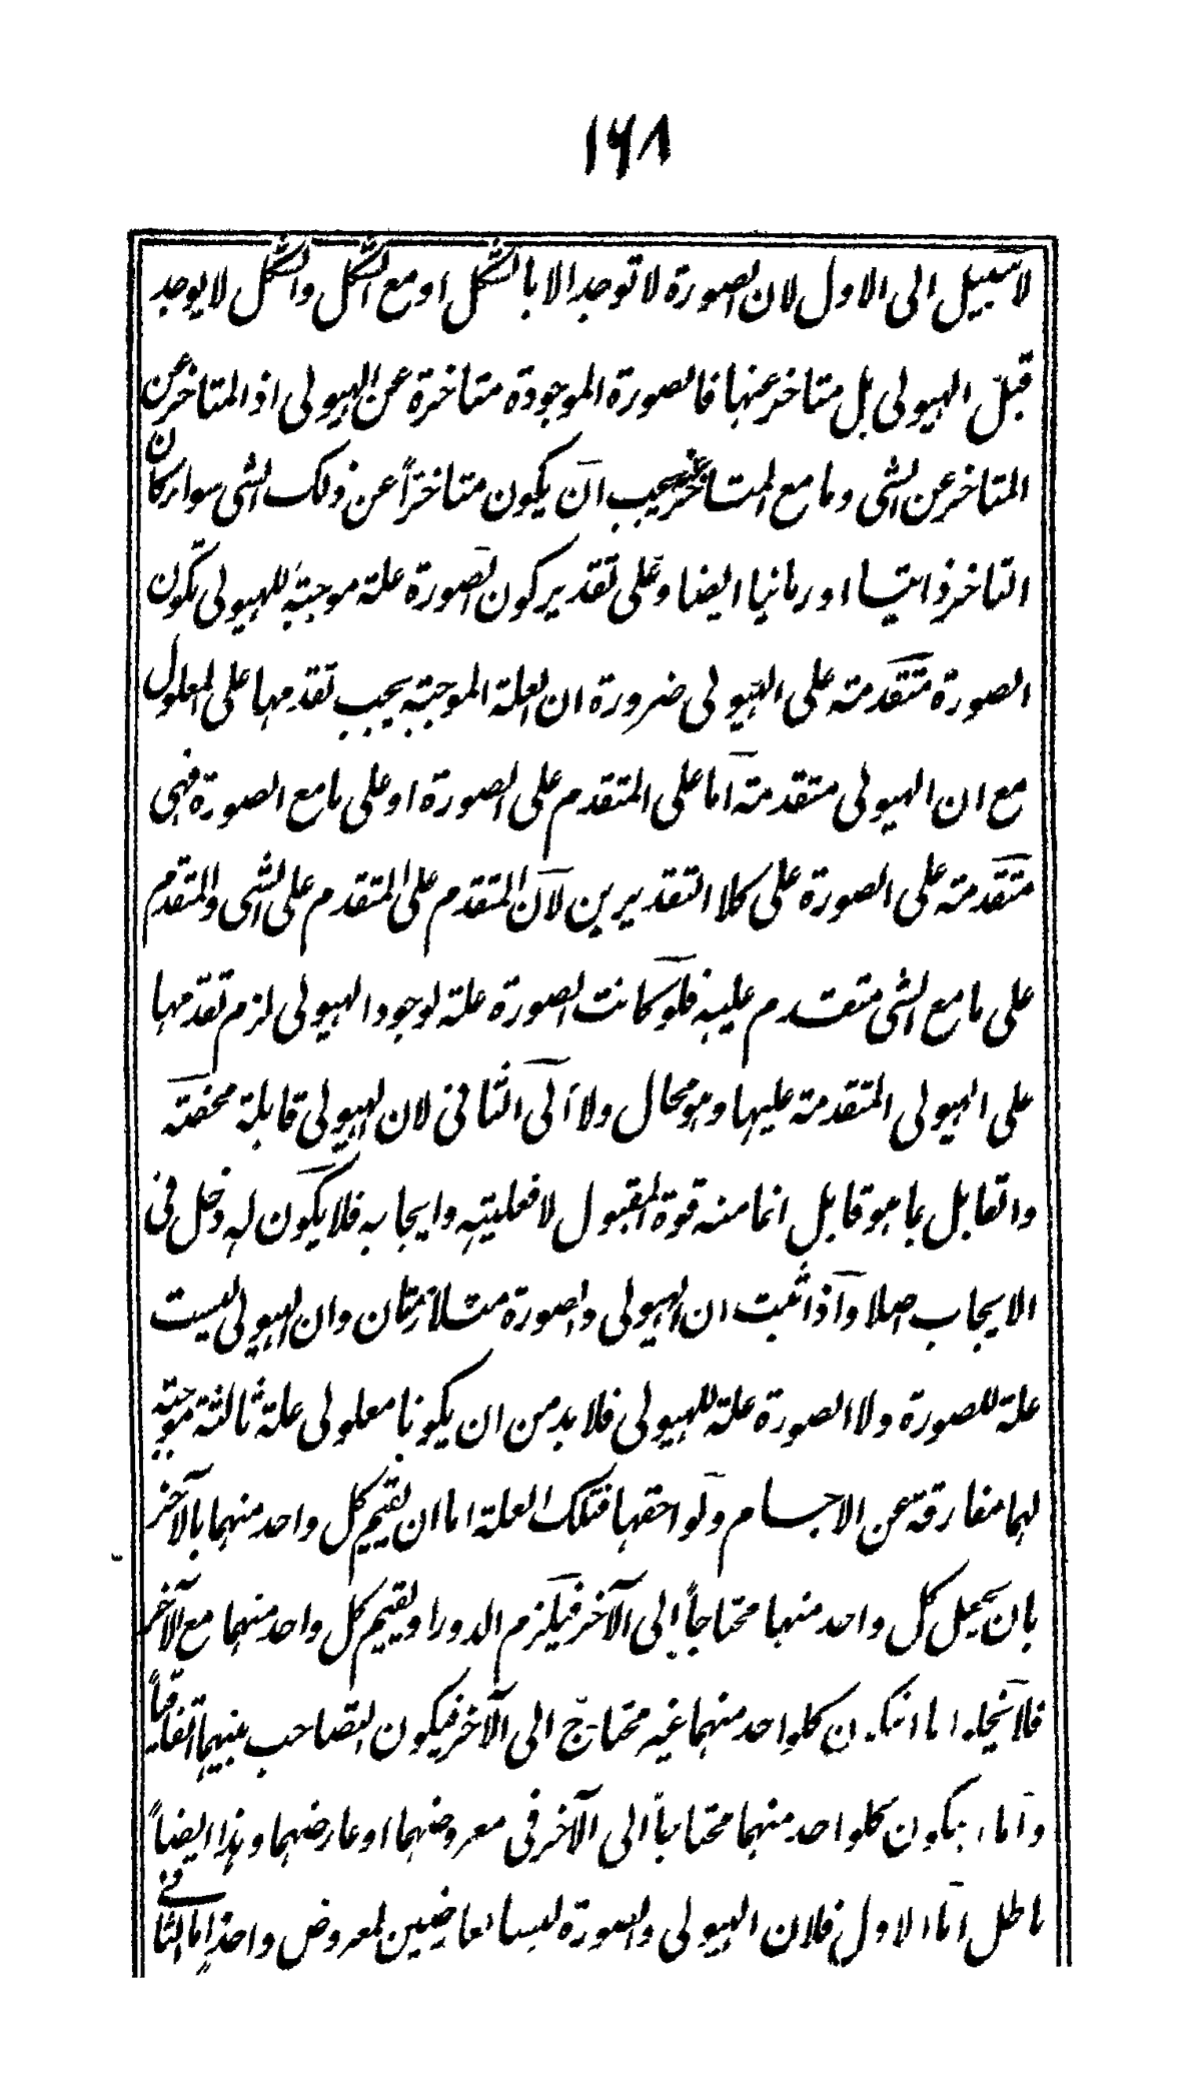 ١٦٨
لا سبيل الى الاول لان الصورة لا توجد الا بالشكل او مع الشكل والشكل لا يوجد
قبل الهيولى بل متاخر عنها فالصورة الموجودة متاخرة عن الهيولى اذ المتاخر عن
المتاخر عن الشى وما مع المتاخر يجب ان يكون متاخرًا عن ذلك الشى سواء كان
التاخر ذاتيا او زمانيا ايضا وعلى تقدير كون الصورة علة موجبة للهيولى تكون
الصورة متقدمة على الهيولى ضرورة ان العلة الموجبة يجب تقدمها على المعلول
مع ان الهيولى متقدمة اما على المتقدم على الصورة او على ما مع الصورة فهى
متقدمة على الصورة على كلا التقديرين لان المتقدم على المتقدم على الشى والمتقدم
على ما مع الشى متقدم عليه فلو كانت الصورة علة لوجود الهيولى لزم تقدمها
على الهيولى المتقدمة عليها وهو محال ولا الى الثانى لان الهيولى قابلة محضة
والقابل بما هو قابل انما منه قوة المقبول لا فعليته وايجابه فلا يكون له دخل فى
الايجاب اصلا واذا ثبت ان الهيولى والصورة متلازمتان وان الهيولى ليست
علة للصورة ولا الصورة علة للهيولى فلا بد من ان يكونا معلولى علة ثالثة موجبة
لهما مفارقة عن الاجسام ولواحقها فتلك العلة اما ان يقيم كل واحد منهما بالآخر
بان يجعل كل واحد منهما محتاجاً الى الآخر فيلزم الدور او يقيم كل واحد منهما مع الآخر
فلا يخلو اما ان يكون كلواحد منهما غير محتاج الى الآخر فيكون التصاحب بينهما اتفاقياً
واما ان يكون كلواحد منهما محتاجاً الى الآخر فى معروضهما او عارضهما وهذا ايضاً
باطل اما الاول فلان الهيولى والصورة ليسا بعارضين لمعروض واحد واما الثانى